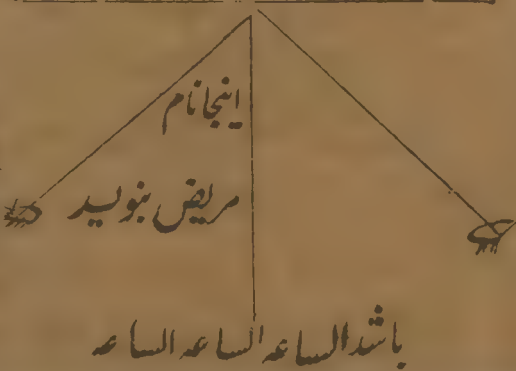 اینجا نام
مریض بنویسد
باشد الساعه الساعه الساعه